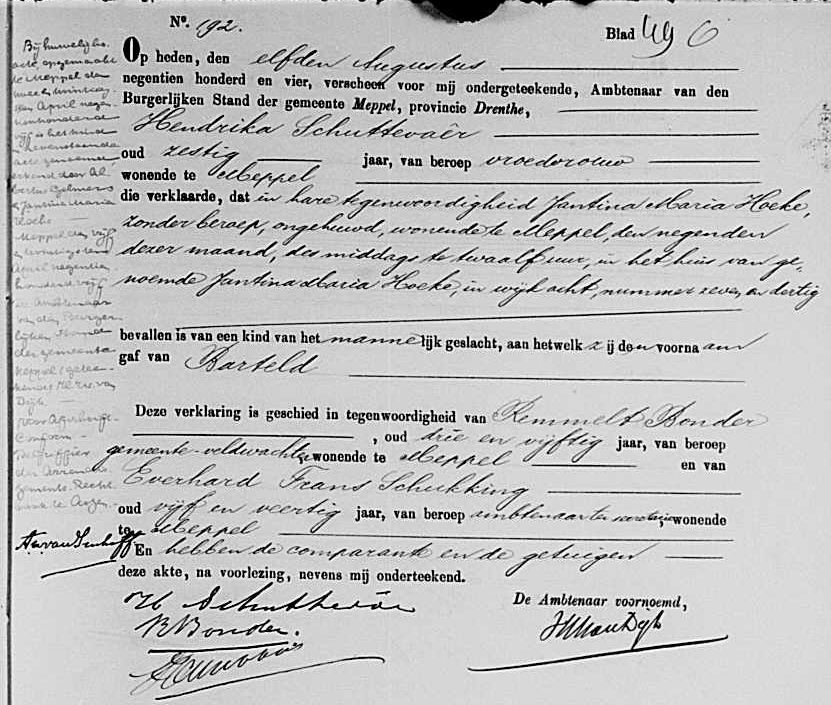 No. 192.
Blad 49 6
Op heden, den elfden Augustus
negentien honderd en vier, verscheen voor mij ondergeteekende, Ambtenaar van den
Burgerlijken Stand der gemeente Meppel, provincie Drenthe,
Hendrika Schuttevaêr
oud zestig jaar, van beroep vroedvrouw
wonende te Meppel
die verklaarde, dat in hare tegenwoordigheid Jantina Maria Hoeke,
zonder beroep, ongehuwd, wonende te Meppel, den negenden
dezer maand, des middags te twaalf uur, in het huis van ge-
noemde Jantina Maria Hoeke, in wijk acht, nummer zeven en dertig
bevallen is van een kind van het mannelijk geslacht, aan hetwelk zij den voornaam
gaf van Barteld
Deze verklaring is geschied in tegenwoordigheid van Remmelt Bonder
, oud drie en vijftig jaar, van beroep
gemeente-veldwachter, wonende te Meppel en van
Everhard Frans Schukking
oud vijf en veertig jaar, van beroep ambtenaar ter secretarie, wonende
te Meppel
En hebben de comparante en de getuigen
deze akte, na voorlezing, nevens mij onderteekend.
H Schuttevaêr
De Ambtenaar voornoemd,
R Bonder.
van Dijk
Bij huwelijks-
acte, opgemaakt
te Meppel den
April negen-
tienhonderd
vijf is het kind
in nevenstaande
acte genoemd
erkend door Al-
bertus
en Jantina Maria
Hoeke
Meppel den vijf
en twintigsten
April negentien-
honderd vijf
de Ambtenaar
van den Burger-
lijken Stand
der gemeente
Meppel (getee-
kend) van
Dijk
voor afschrift
Conform
de Griffier
der Arrondis-
sements Recht-
bank te Assen